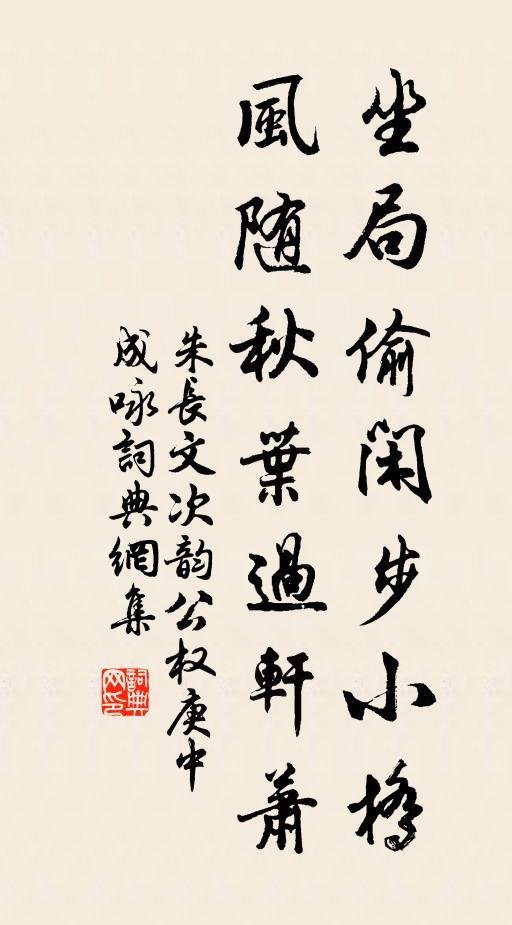 坐局偷閑步小橋
風随秋葉過軒蕭
朱長文次韵公权庚中
成咏詞典網集
詞典网印